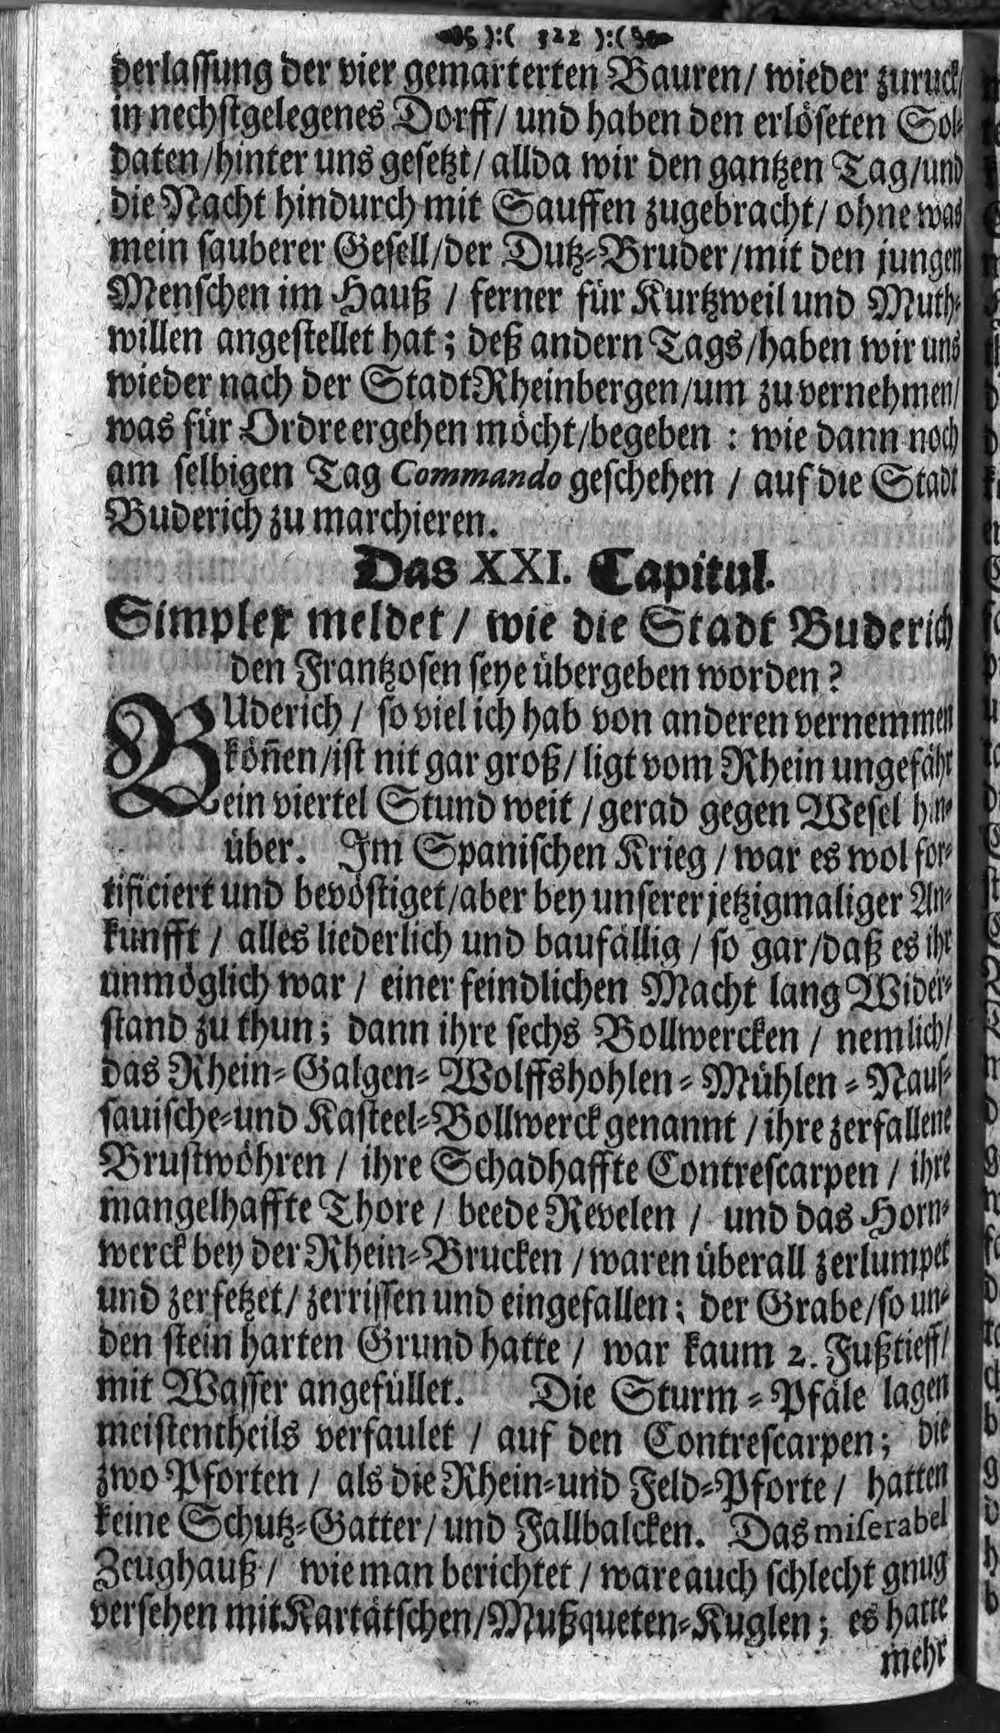 ):( 322 ):(
derlassung der vier gemarterten Bauren/ wieder zuruck/
in nechstgelegenes Dorff/ und haben den erlöseten Sol-
daten/hinter uns gesetzt/ allda wir den gantzen Tag/und
die Nacht hindurch mit Sauffen zugebracht/ ohne was
mein sauberer Gesell/der Dutz-Bruder/mit den jungen
Menschen im Hauß / ferner für Kurtzweil und Muth-
willen angestellet hat; deß andern Tags/haben wir uns
wieder nach der Stadt Rheinbergen/um zu vernehmen/
was für Ordre ergehen möcht/begeben : wie dann noch
am selbigen Tag Commando geschehen / auf die Stadt
Buderich zu marchieren.
Das XXI. Capitul.
Simplex meldet / wie die Stadt Buderich
den Frantzosen seye übergeben worden?
BUderich / so viel ich hab von anderen vernemmen
köñen/ist nit gar groß/ ligt vom Rhein ungefähr
ein viertel Stund weit / gerad gegen Wesel hin-
über. Im Spanischen Krieg / war es wol for-
tificiert und bevöstiget/aber bey unserer jetzigmaliger An-
kunfft / alles liederlich und baufällig / so gar/daß es ihr
unmöglich war / einer feindlichen Macht lang Wider-
stand zu thun; dann ihre sechs Bollwercken / nemlich/
das Rhein- Galgen- Wolffshohlen - Mühlen - Nas-
sauische-und Kasteel-Bollwerck genannt / ihre zerfallene
Brustwöhren / ihre Schadhaffte Contrescarpen / ihre
mangelhaffte Thore / beede Revelen / und das Horn-
werck bey der Rhein-Brucken / waren überall zerlumpet
und zerfetzet/ zerrissen und eingefallen; der Grabe/so un-
den stein harten Grund hatte / war kaum 2. Fußtieff/
mit Wasser angefüllet. Die Sturm - Pfäle lagen
meistentheils verfaulet / auf den Contrescarpen; die
zwo Pforten / als die Rhein-und Feld-Pforte / hatten
keine Schutz-Gatter/ und Fallbalcken. Das miserabel
Zeughauß / wie man berichtet / ware auch schlecht gnug
versehen mit Kartätschen/Mußqueten-Kuglen; es hatte
mehr